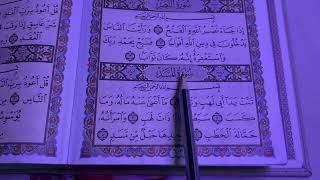 سُورَةُ النَّصْرِ
بِسْمِ اللَّهِ الرَّحْمَٰنِ الرَّحِيمِ
إِذَا جَاءَ نَصْرُ اللَّهِ وَالْفَتْحُ ۝ وَرَأَيْتَ النَّاسَ
يَدْخُلُونَ فِي دِينِ اللَّهِ أَفْوَاجًا ۝ فَسَبِّحْ بِحَمْدِ رَبِّكَ
وَاسْتَغْفِرْهُ إِنَّهُ كَانَ تَوَّابًا ۝
سُورَةُ الْمَسَدِ
بِسْمِ اللَّهِ الرَّحْمَٰنِ الرَّحِيمِ
تَبَّتْ يَدَا أَبِي لَهَبٍ وَتَبَّ ۝ مَا أَغْنَىٰ عَنْهُ مَالُهُ وَمَا
كَسَبَ ۝ سَيَصْلَىٰ نَارًا ذَاتَ لَهَبٍ ۝ وَامْرَأَتُهُ
حَمَّالَةَ الْحَطَبِ ۝ فِي جِيدِهَا حَبْلٌ مِنْ مَسَدٍ ۝
قُلْ أَعُوذُ بِرَبِّ
الْعُقَدِ ۝
قُلْ أَعُوذُ بِرَبِّ
النَّاسِ ۝